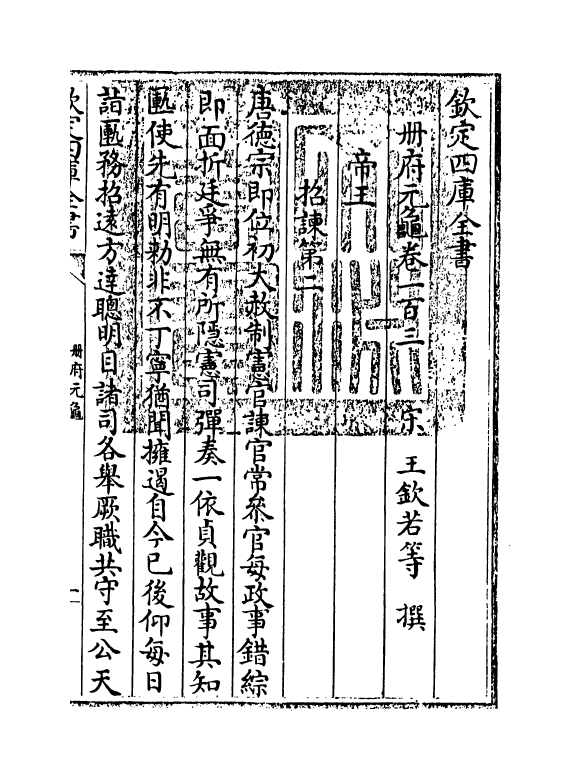 欽定四庫全書
冊府元龜卷一百三
宋 王欽若等 撰
帝王
招諫第二
唐德宗即位初大赦制憲官諫官常參官每政事錯綜
即面折廷爭無有所隱憲司彈奏一依貞觀故事其知
匭使先有明勅非不丁寧猶聞擁遏自今已後仰每日
詣匭務招遠方達聰明目諸司各舉厥職共守至公天
欽定四庫全書
冊府元龜